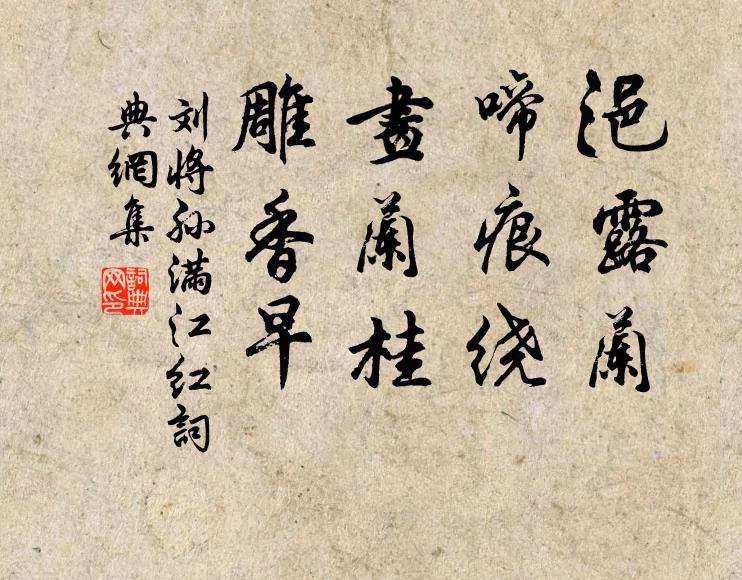 浥露蘭
啼痕绕
畫蘭桂
雕香早
刘将孙满江红詞
典網集
詞典
网印